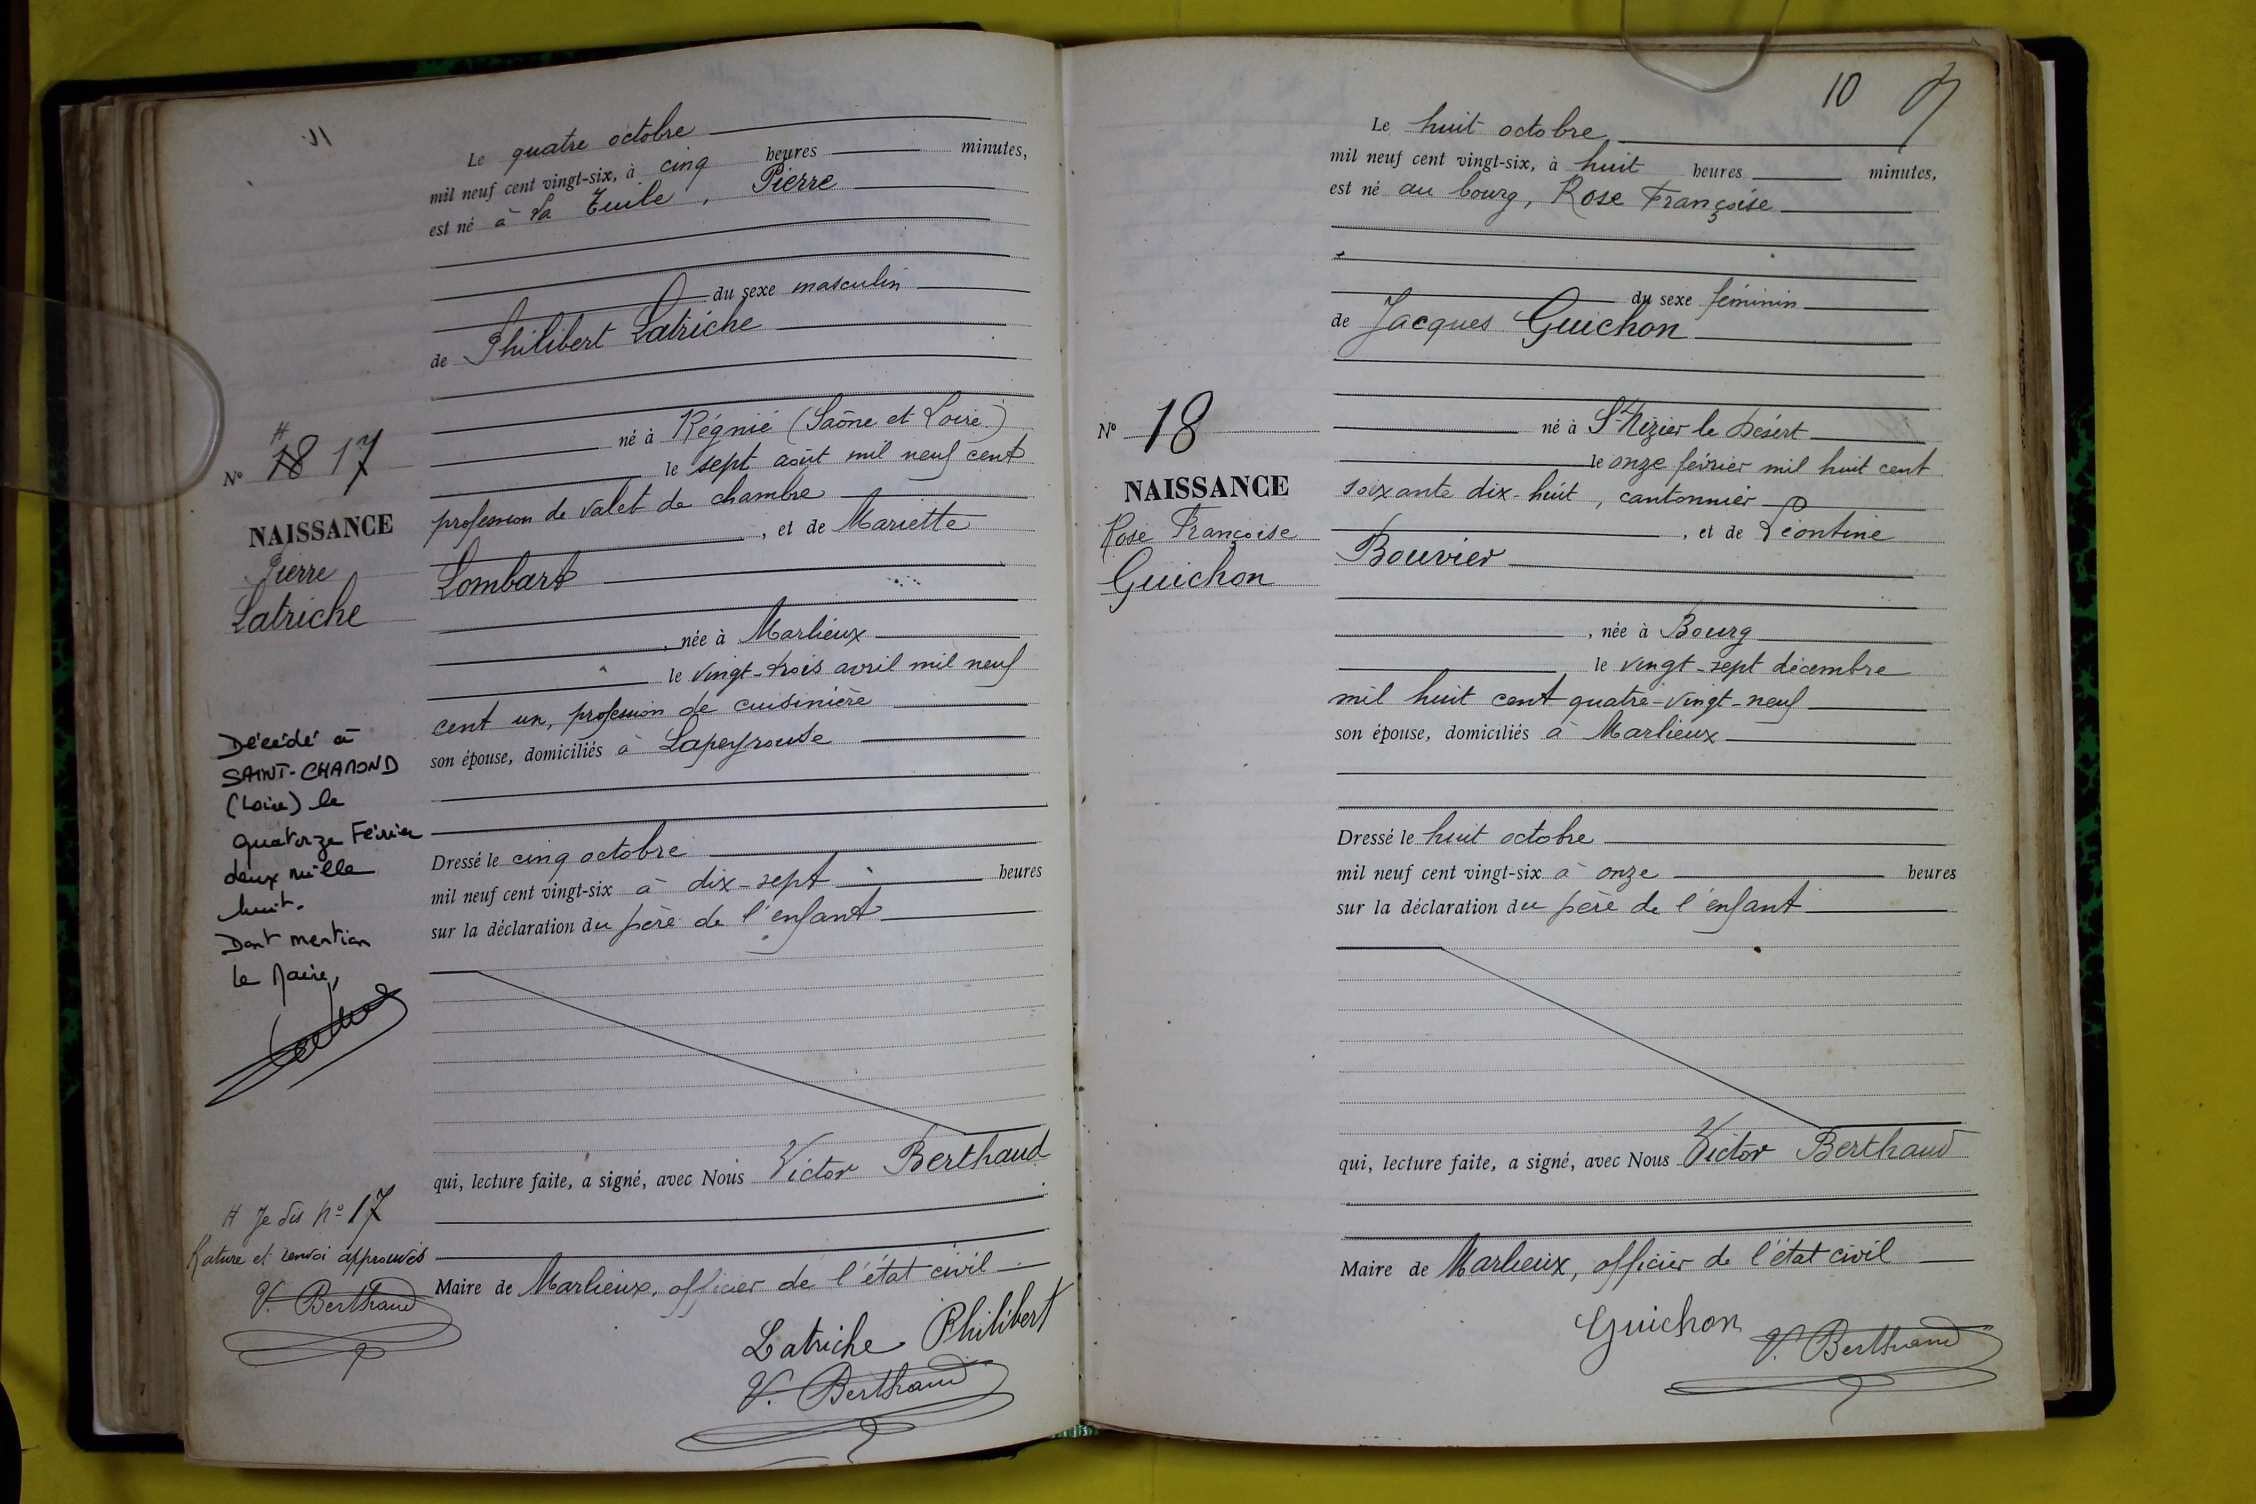 Le quatre octobre
mil neuf cent vingt-six, à cinq heures minutes,
est né à La Tuile, Pierre
du sexe masculin
de Philibert Latriche
né à Régnié (Saône et Loire)
le sept août mil neuf cent
profession de valet de chambre
, et de Mariette
Lombart
, née à Marlieux
le vingt-trois avril mil neuf
cent un, profession de cuisinière
son épouse, domiciliés à Lapeyrouse
Dressé le cinq octobre
mil neuf cent vingt-six à dix-sept heures
sur la déclaration du père de l'enfant
qui, lecture faite, a signé, avec Nous Victor Berthaud
Maire de Marlieux, officier de l'état civil
Latriche Philibert
V. Berthaud
No 18 17
NAISSANCE
Pierre
Latriche
Décédé à
SAINT-CHAMOND
(Loire) le
quatorze Février
deux mille
huit.
Dont mention
Le Maire,
Je dis No 17
Rature et renvoi approuvés
V. Berthaud
10
Le huit octobre
mil neuf cent vingt-six, à huit heures minutes,
est né au bourg, Rose Françoise
du sexe féminin
de Jacques Guichon
né à St Nizier le Désert
le onze février mil huit cent
soixante dix-huit, cantonnier
, et de Léontine
Bouvier
, née à Bourg
le vingt-sept décembre
mil huit cent quatre-vingt-neuf
son épouse, domiciliés à Marlieux
Dressé le huit octobre
mil neuf cent vingt-six à onze heures
sur la déclaration du père de l'enfant
qui, lecture faite, a signé, avec Nous Victor Berthaud
Maire de Marlieux, officier de l'état civil
Guichon
V. Berthaud
No 18
NAISSANCE
Rose Françoise
Guichon